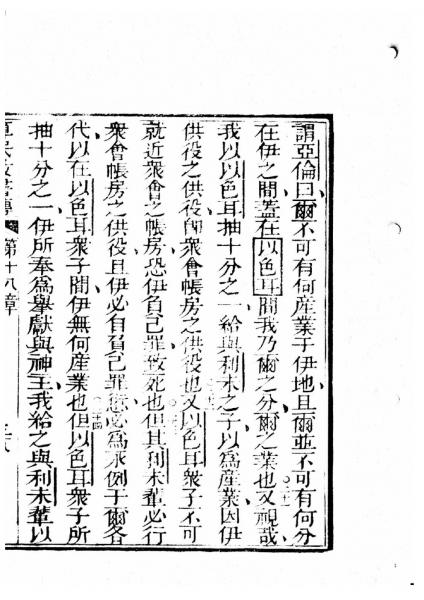 謂亞倫曰爾不可有何產業于伊地且爾並不可有何分
在伊之間蓋在以色耳間我乃爾之分爾之業也又視哉
我以以色耳抽十分之一給與利未之子以爲產業因伊
供役之供役即衆會帳房之供役也又以色耳衆子不可
就近衆會之帳房恐伊負己罪致死也但其利未輩必行
衆會帳房之供役且伊必自負己罪愆必爲永例于爾各
代以在以色耳衆子間伊無何產業也但以色耳衆子所
抽十分之一伊所奉爲舉獻與神主我給之與利未輩以
第十八章